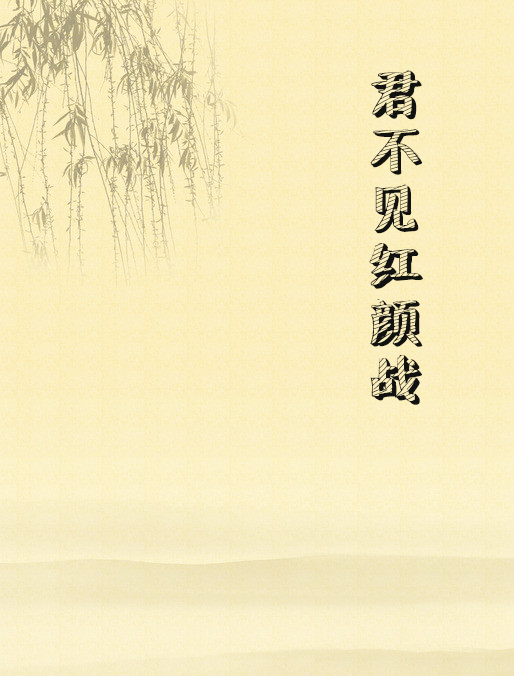 君不见红颜战